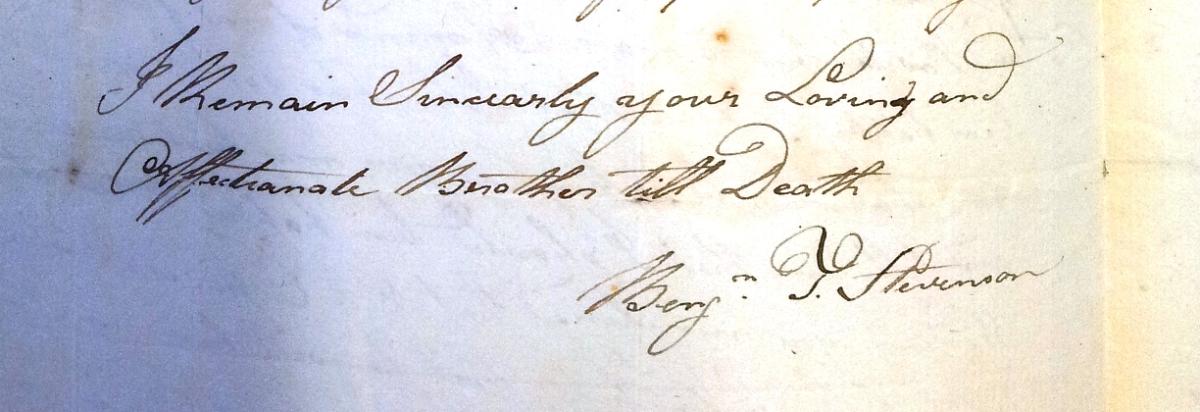 I Remain Sincearly your Loving and
Affectianate Brother till Death
Benjn. T. Stevenson